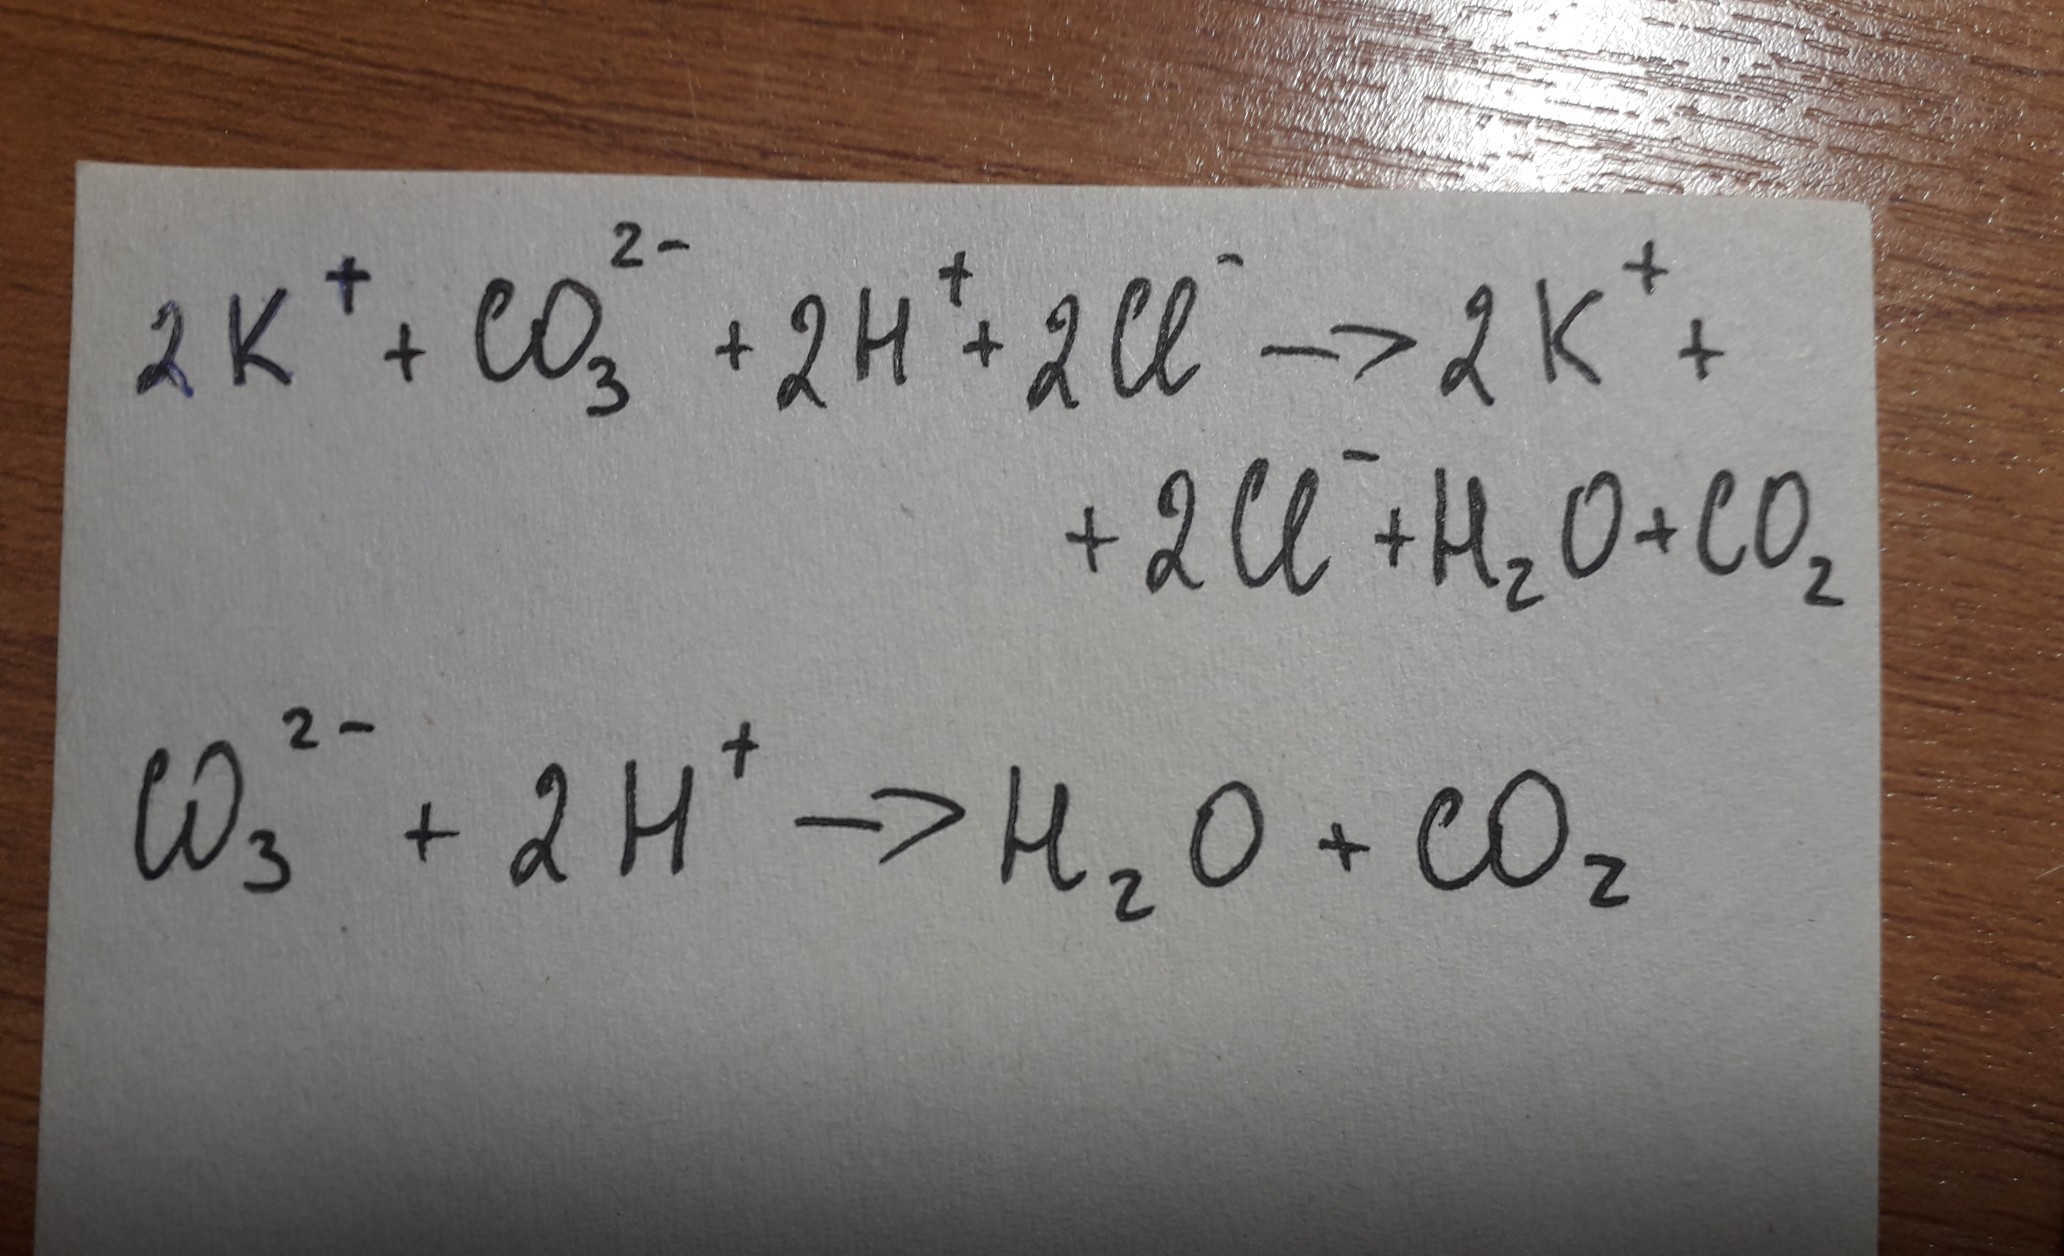 2K⁺ + CO₃²⁻ + 2H⁺ + 2Cl⁻ → 2K⁺ +
+ 2Cl⁻ + H₂O + CO₂
CO₃²⁻ + 2H⁺ → H₂O + CO₂